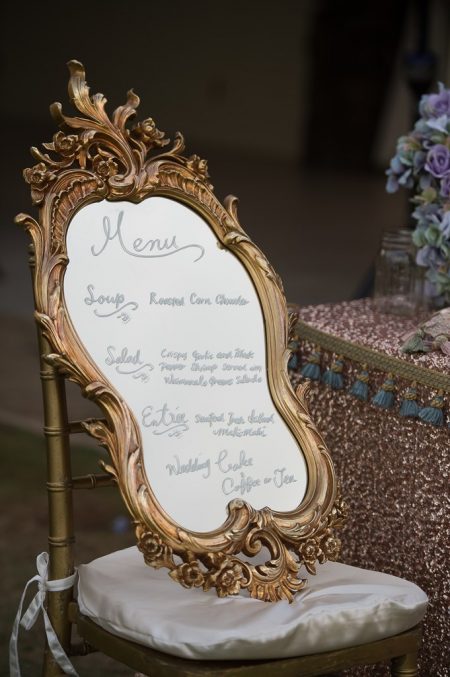 Menu
Soup Roasted Corn Chowder
Salad Crispy Garlic and Black
Pepper Shrimp served on
Greens Salad
Entrée Seafood
Mahi-Mahi
Wedding Cake
&
Coffee or Tea